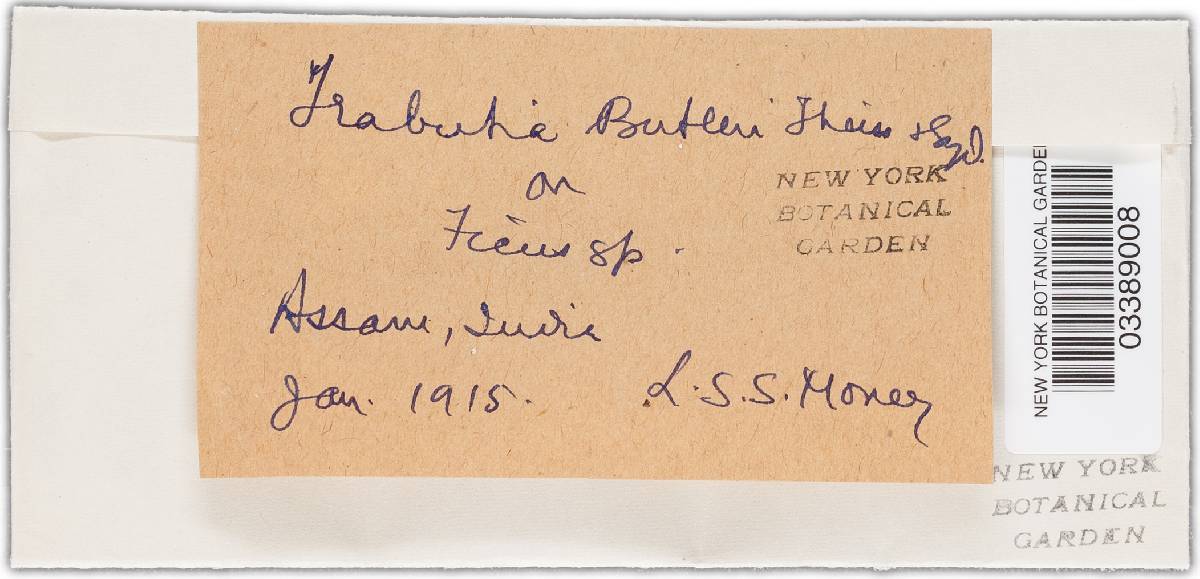 Trabutia Butleri Theiss & Syd.
on
Ficus sp.
Assam, India
Jan. 1915. L.S.S. Money
NEW YORK
BOTANICAL
GARDEN
NEW YORK BOTANICAL GARDE
03389008
NEW YORK
BOTANICAL
GARDEN